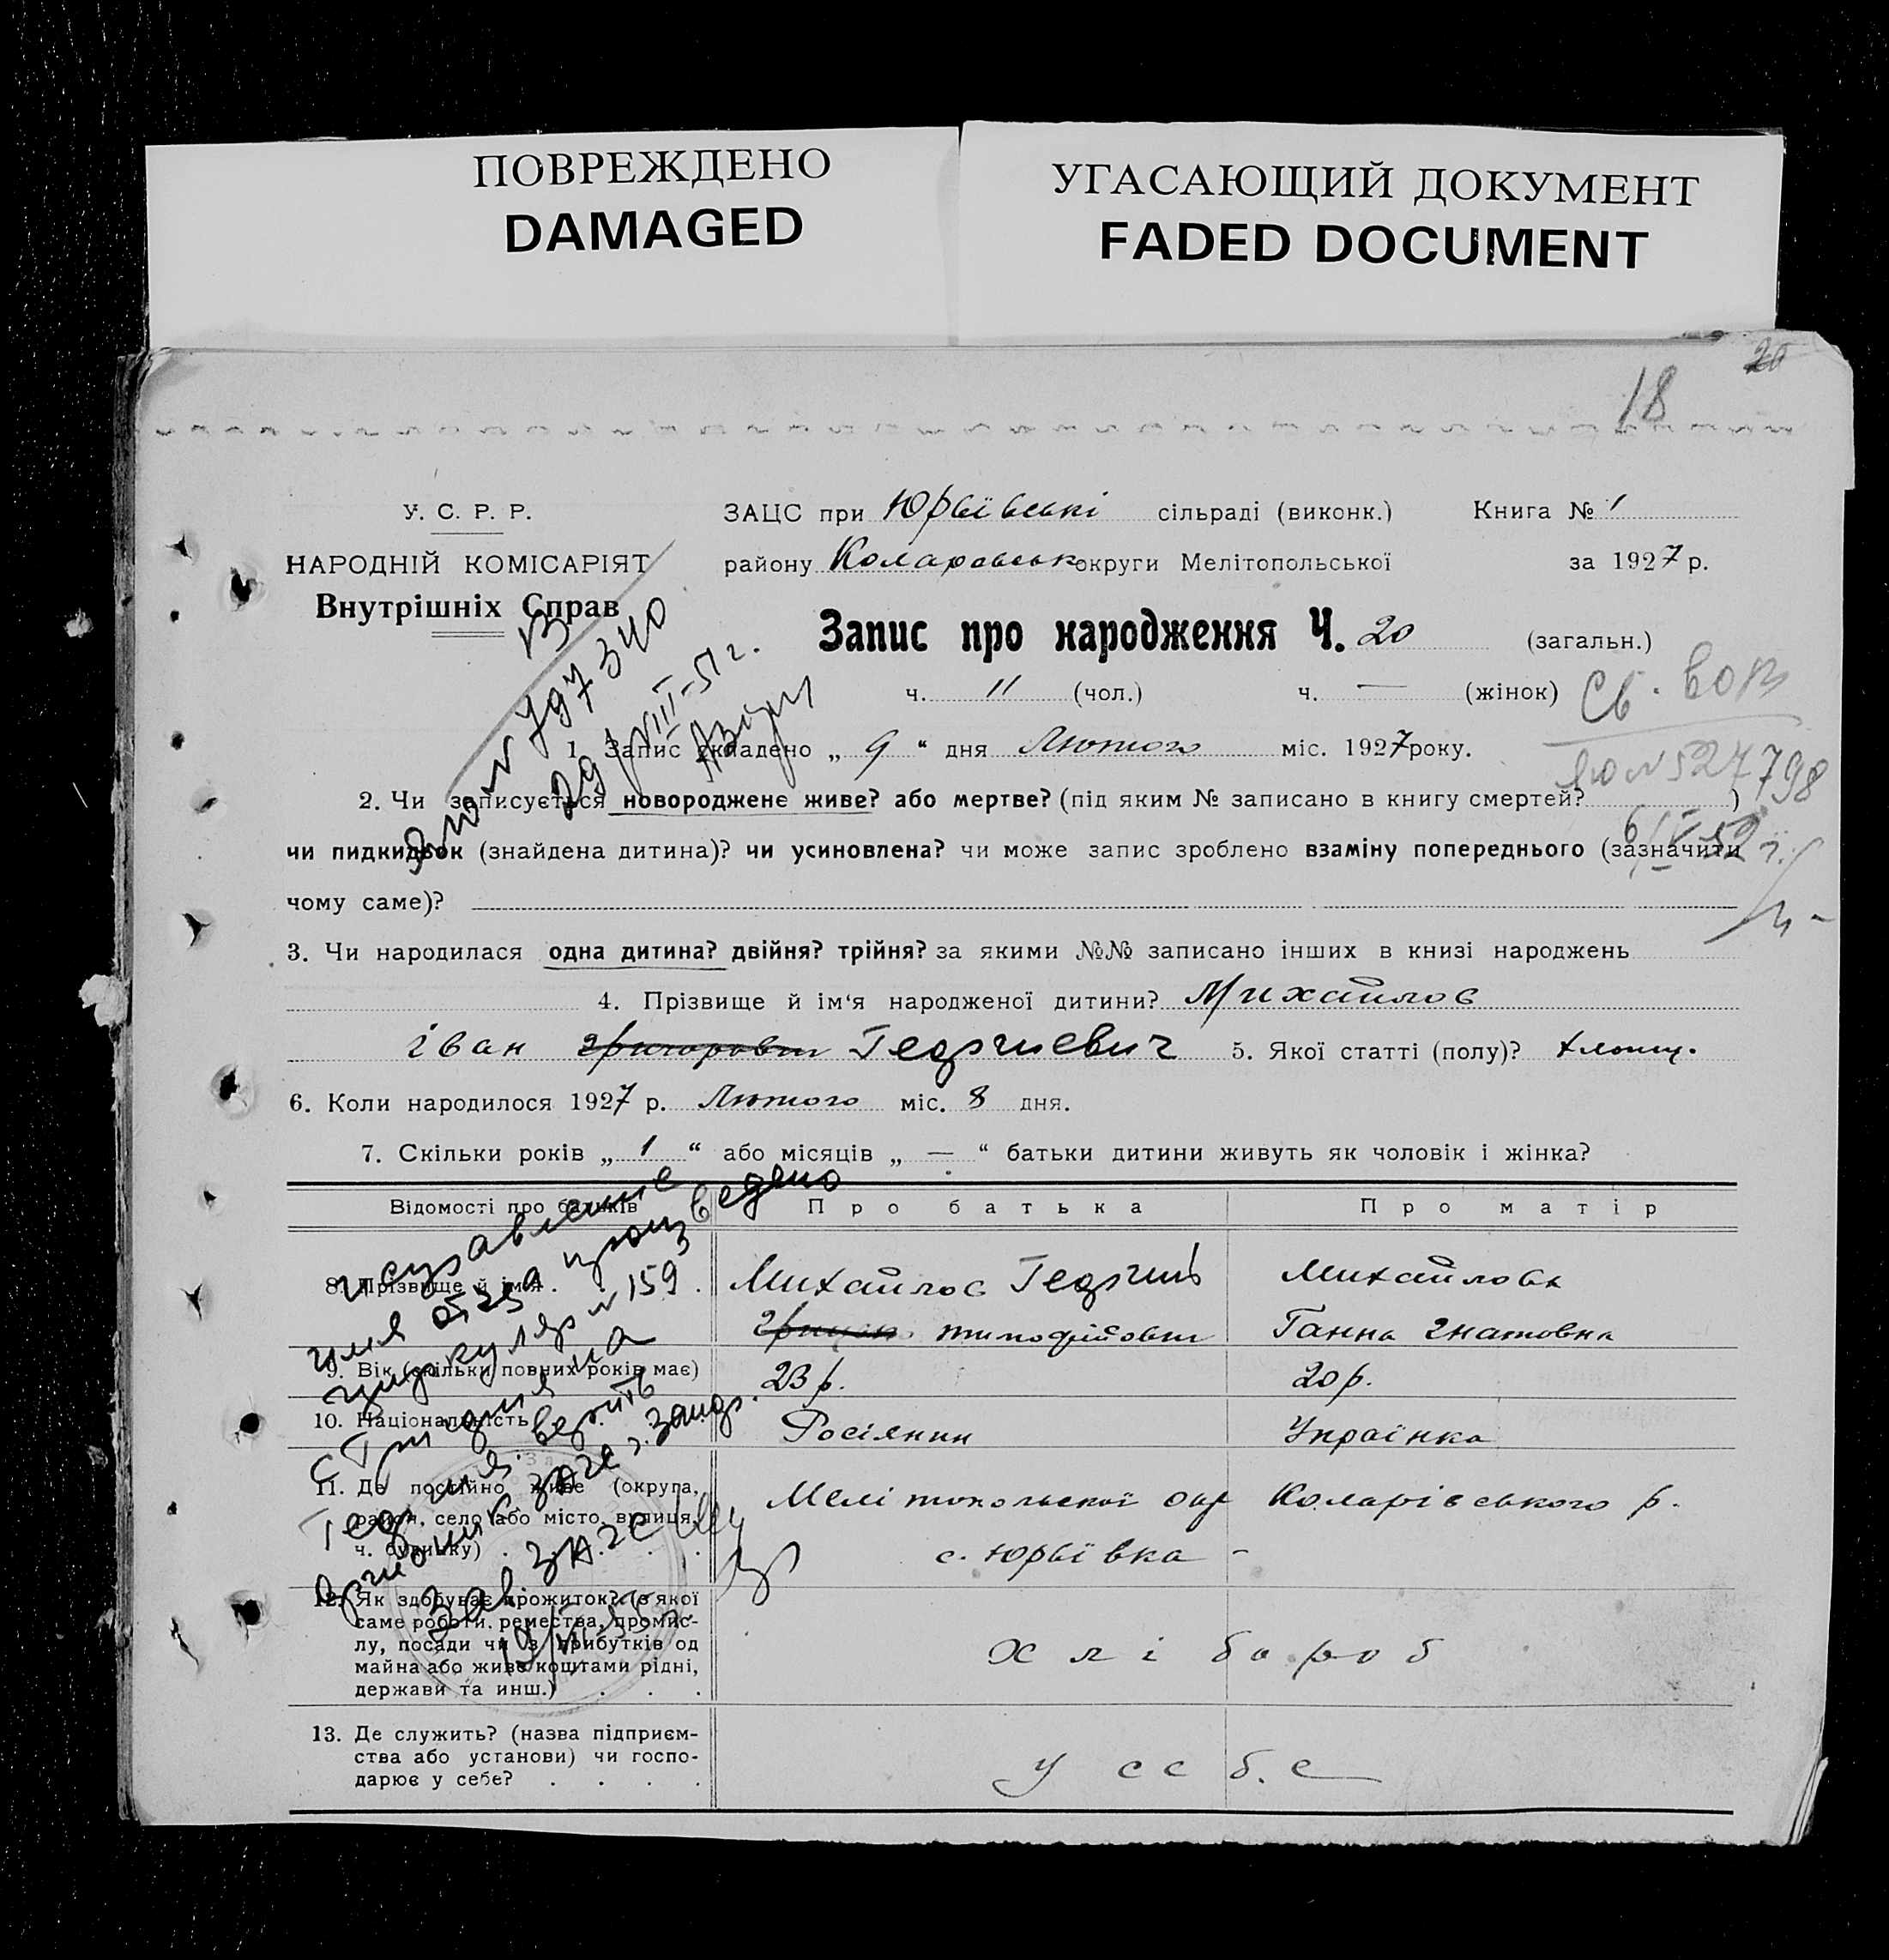 ПОВРЕЖДЕНО
DAMAGED
УГАСАЮЩИЙ ДОКУМЕНТ
FADED DOCUMENT
20
18
У. С. Р. Р.
НАРОДНІЙ КОМІСАРІЯТ
Внутрішніх Справ
ЗАЦС при Юрьївські сільраді (виконк.) Книга № 1
району Коларовськ округи Мелітопольської за 1927 р.
Запис про народження Ч. 20 (загальн.)
ч. 11 (чол.) ч. — (жінок)
797340
29/VIII-51 г.
Св.
№ 527798
6/V-52 г.
1. Запис складено „ 9 “ дня Лютого міс. 1927 року.
2. Чи записується новороджене живе? або мертве? (під яким № записано в книгу смертей? )
чи пидкидьок (знайдена дитина)? чи усиновлена? чи може запис зроблено взаміну попереднього (зазначити
чому саме)?
3. Чи народилася одна дитина? двійня? трійня? за якими №№ записано інших в книзі народжень
4. Прізвище й ім‘я народженої дитини? Михайлов
Іван Григорович Георгиевич 5. Якої статті (полу)? хлопц.
6. Коли народилося 1927 р. Лютого міс. 8 дня.
7. Скільки років „ 1 “ або місяців „ — “ батьки дитини живуть як чоловік і жінка?
Відомості про батьків Про батька Про матір
8. Прізвище й ім‘я . Михайлов Георгий Михайлова
тимофійович Ганна Гнатовна
9. Вік (скільки повних років має) 23 р. 20 р.
10. Національність Росіянин Українка
11. Де постійно живе (округа, район, село або місто, вулиця, ч. будинку) Мелітопольської окр Коларівського р.
с. Юрьївка -
12. Як здобуває прожиток? (з якої
саме роботи, ремества, промис-
лу, посади чи з прибутків од
майна або живе коштами рідні,
держави та инш.) хлібороб
13. Де служить? (назва підприєм-
ства або установи) чи госпо-
дарює у себе? у себе
исправление
имя отца произведено
циркуляр № 159
с Григория на
Георгия верить
зав ЗАГС